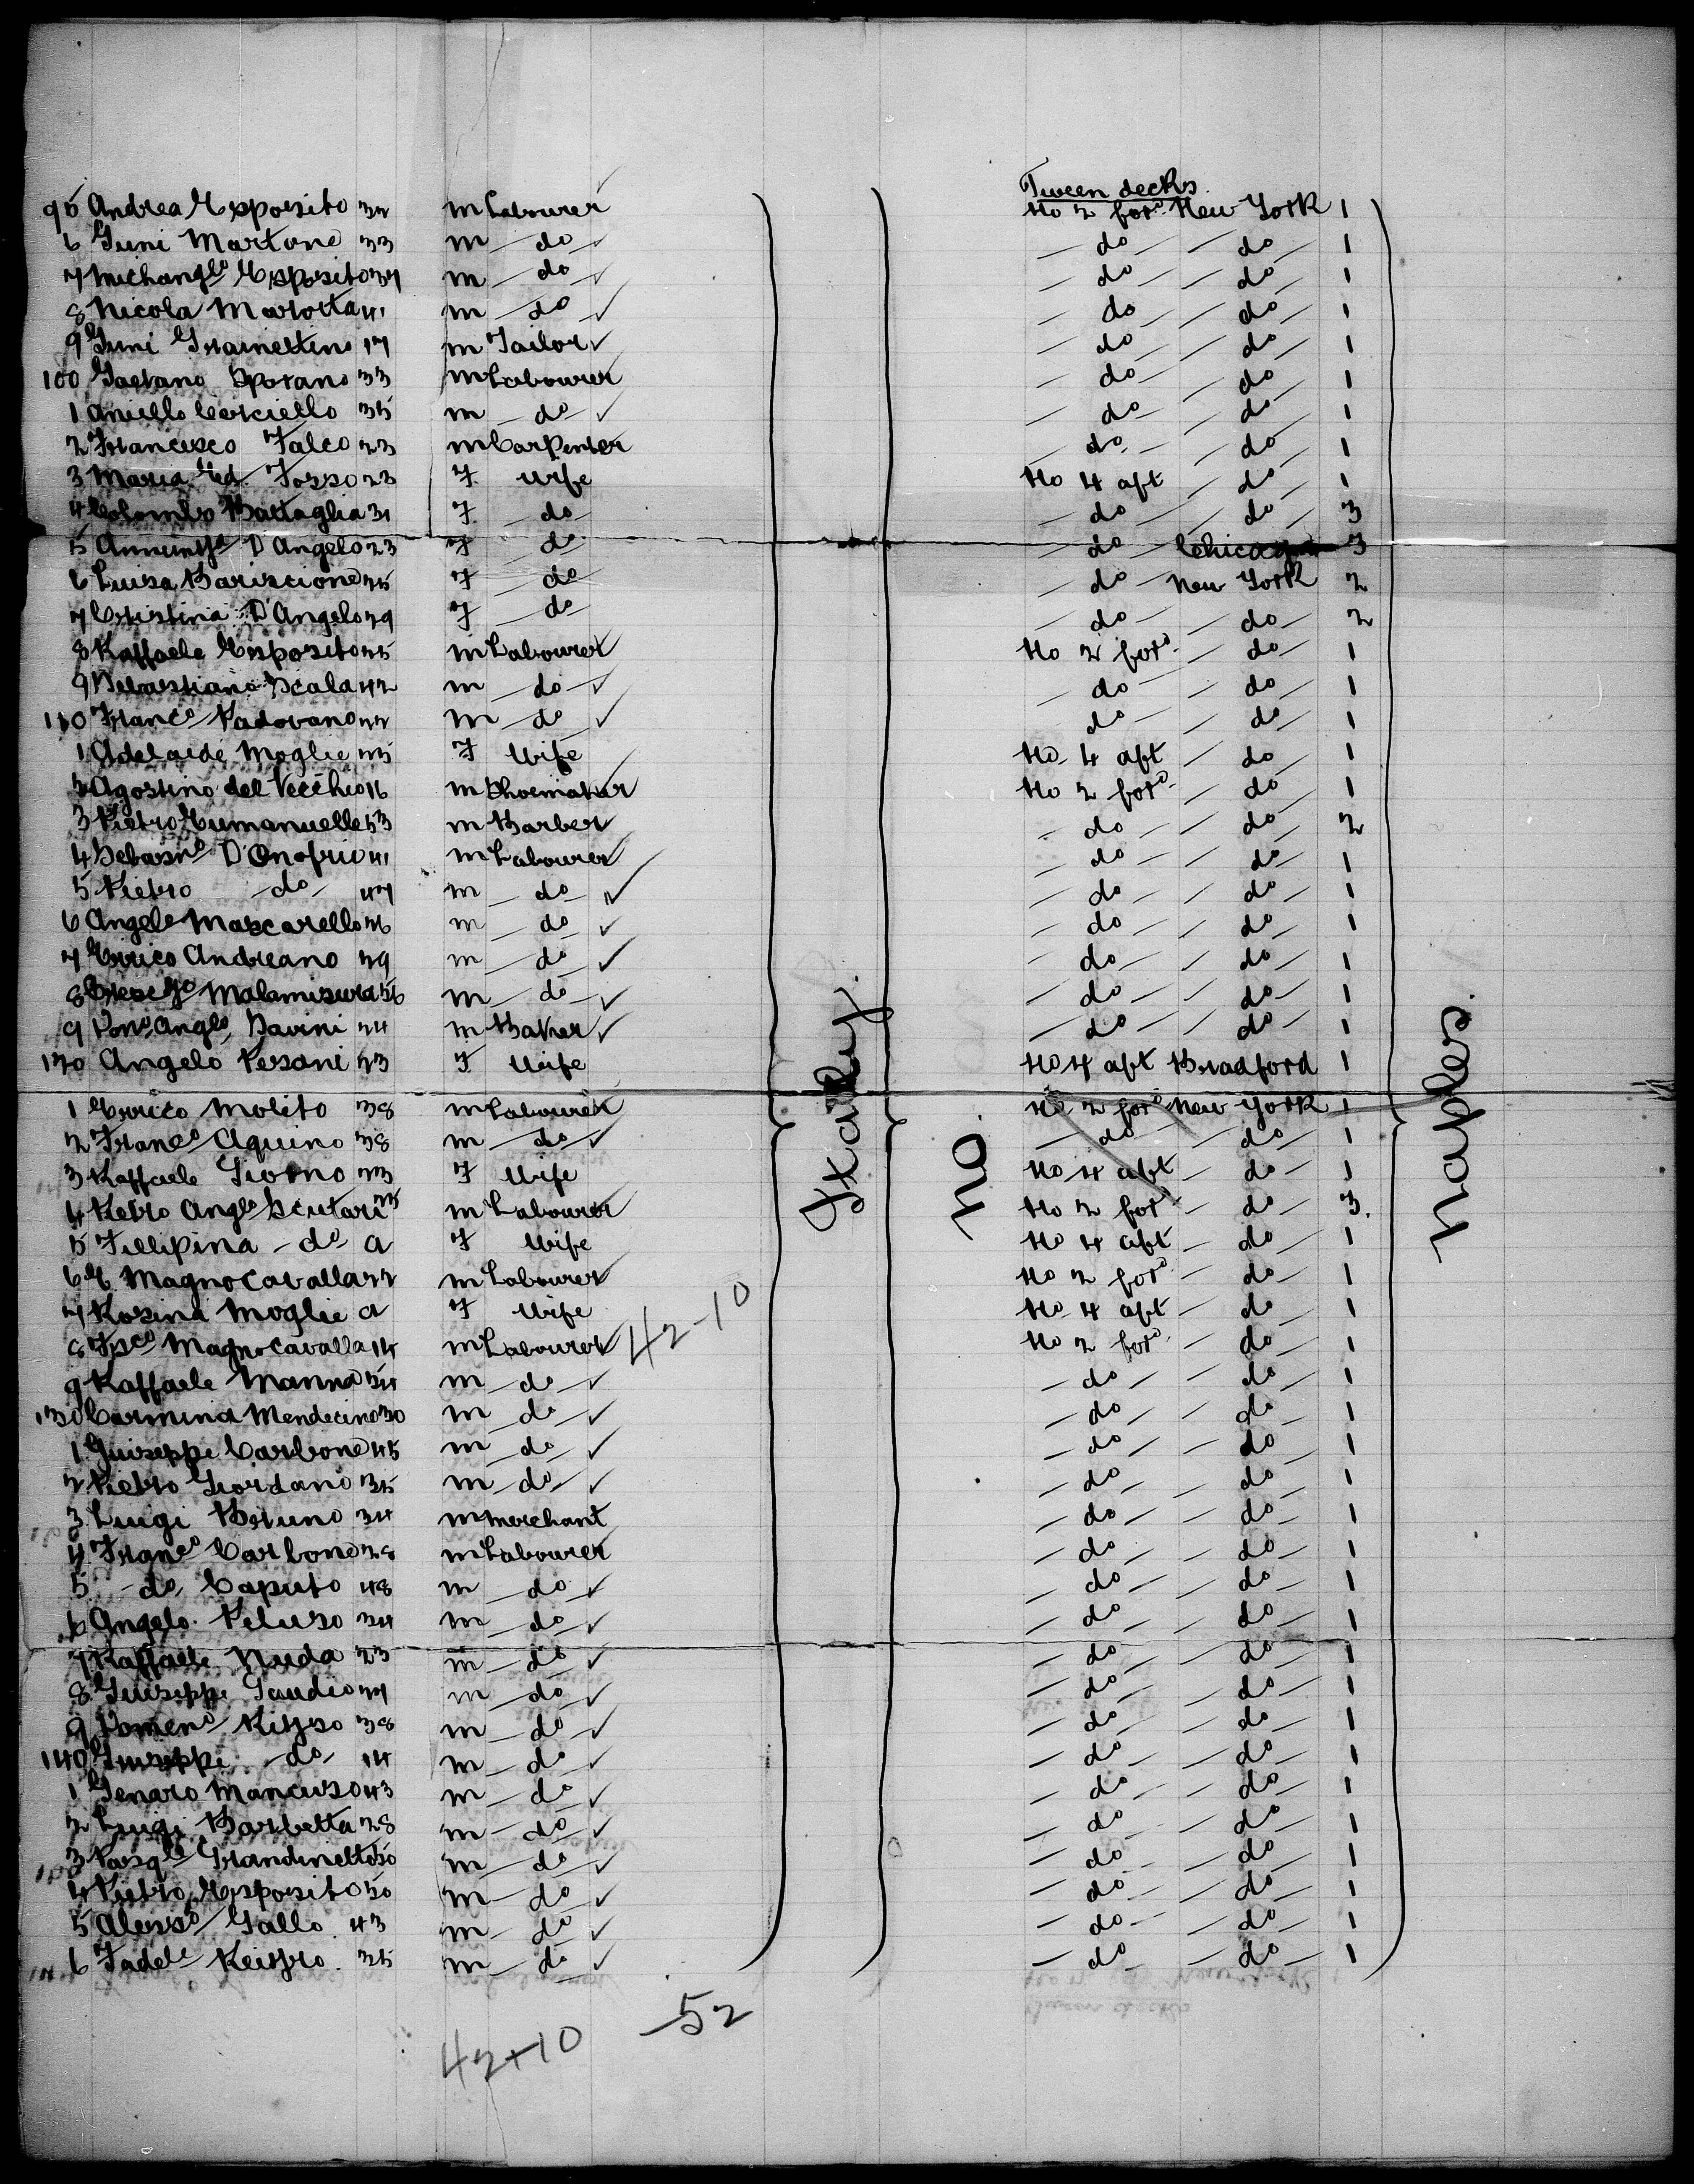 Tween decks
95 Andrea Esposito 32 m Labourer No 2 for^d New York 1
6 Guni Martone 33 m do do do 1
7 Michangl^o Esposito 37 m do do do 1
8 Nicola Marotta 41 m do do do 1
9 Guni 17 m Tailor do do 1
100 Gaetano Sporano 33 m Labourer do do 1
1 Aniello Corciello 35 m do do do 1
2 Francesco Falco 23 m Carpenter do do 1
3 Maria Fosso 23 F wife No 4 aft do 1
4 Colombo Battaglia 31 F do do do 3
5 D'Angelo 23 F do do Chicago 3
6 Luisa Bariscione 25 F do do New York 2
7 Cristina D'Angelo 29 F do do do 2
8 Raffaele Esposito 25 m Labourer No 2 for^d do 1
9 Sebastiano Scala 42 m do do do 1
110 Franc^o Padovano 22 m do do do 1
1 Adelaide Moglie 25 F Wife No 4 aft do 1
2 Agostino del Vecchio 16 m Shoemaker No 2 for^d do 1
3 Pietro Eumanuelle 53 m Barber do do 2
4 Sebasn^o D'Onofrio 41 m Labourer do do 1
5 Pietro do 47 m do do do 1
6 Angelo Mascarello 26 m do do do 1
7 Errico Andreano 29 m do do do 1
8 Malamisura 56 m do do do 1
9 Angl^o Savini 24 m Baker do do 1
120 Angelo Pesani 23 F Wife No 4 aft Bradford 1
1 Errico Molito 38 m Labourer No 2 for^d New York 1
2 Franc^o Aquino 38 m do do do 1
3 Raffaele Giorno 23 F Wife No 4 aft do 1
4 Pietro Angl^o Scutari 35 m Labourer No 2 for^d do 3
5 Fillipina do a F Wife No 4 aft do 1
6 E Magnocavalla 22 m Labourer No 2 for^d do 1
7 Rosina Moglie a F Wife No 4 aft do 1
8 Fsc^o Magnocavalla 14 m Labourer No 2 for^d do 1
42-10
9 Raffaele Manna 54 m do do do 1
130 Carmina Mendecino 30 m do do do 1
1 Guiseppe Carbone 45 m do do do 1
2 Pietro Giordano 35 m do do do 1
3 Luigi Bruno 34 m Merchant do do 1
4 Franc^o Carbone 28 m Labourer do do 1
5 do Caputo 48 m do do do 1
6 Angelo Peluso 34 m do do do 1
7 Raffaele Nuda 23 m do do do 1
8 Guiseppe Gaudio 27 m do do do 1
9 Domen^o Rizzo 38 m do do do 1
140 Guiseppe do 14 m do do do 1
1 Genaro Mancuso 43 m do do do 1
2 Luigi Barbetta 28 m do do do 1
3 Pasq^le Grandinetto 50 m do do do 1
4 Pietro Esposito 50 m do do do 1
5 Aless^o Gallo 43 m do do do 1
6 Fadel^e 35 m do do do 1
Italy
no
Naples
42+10 -52